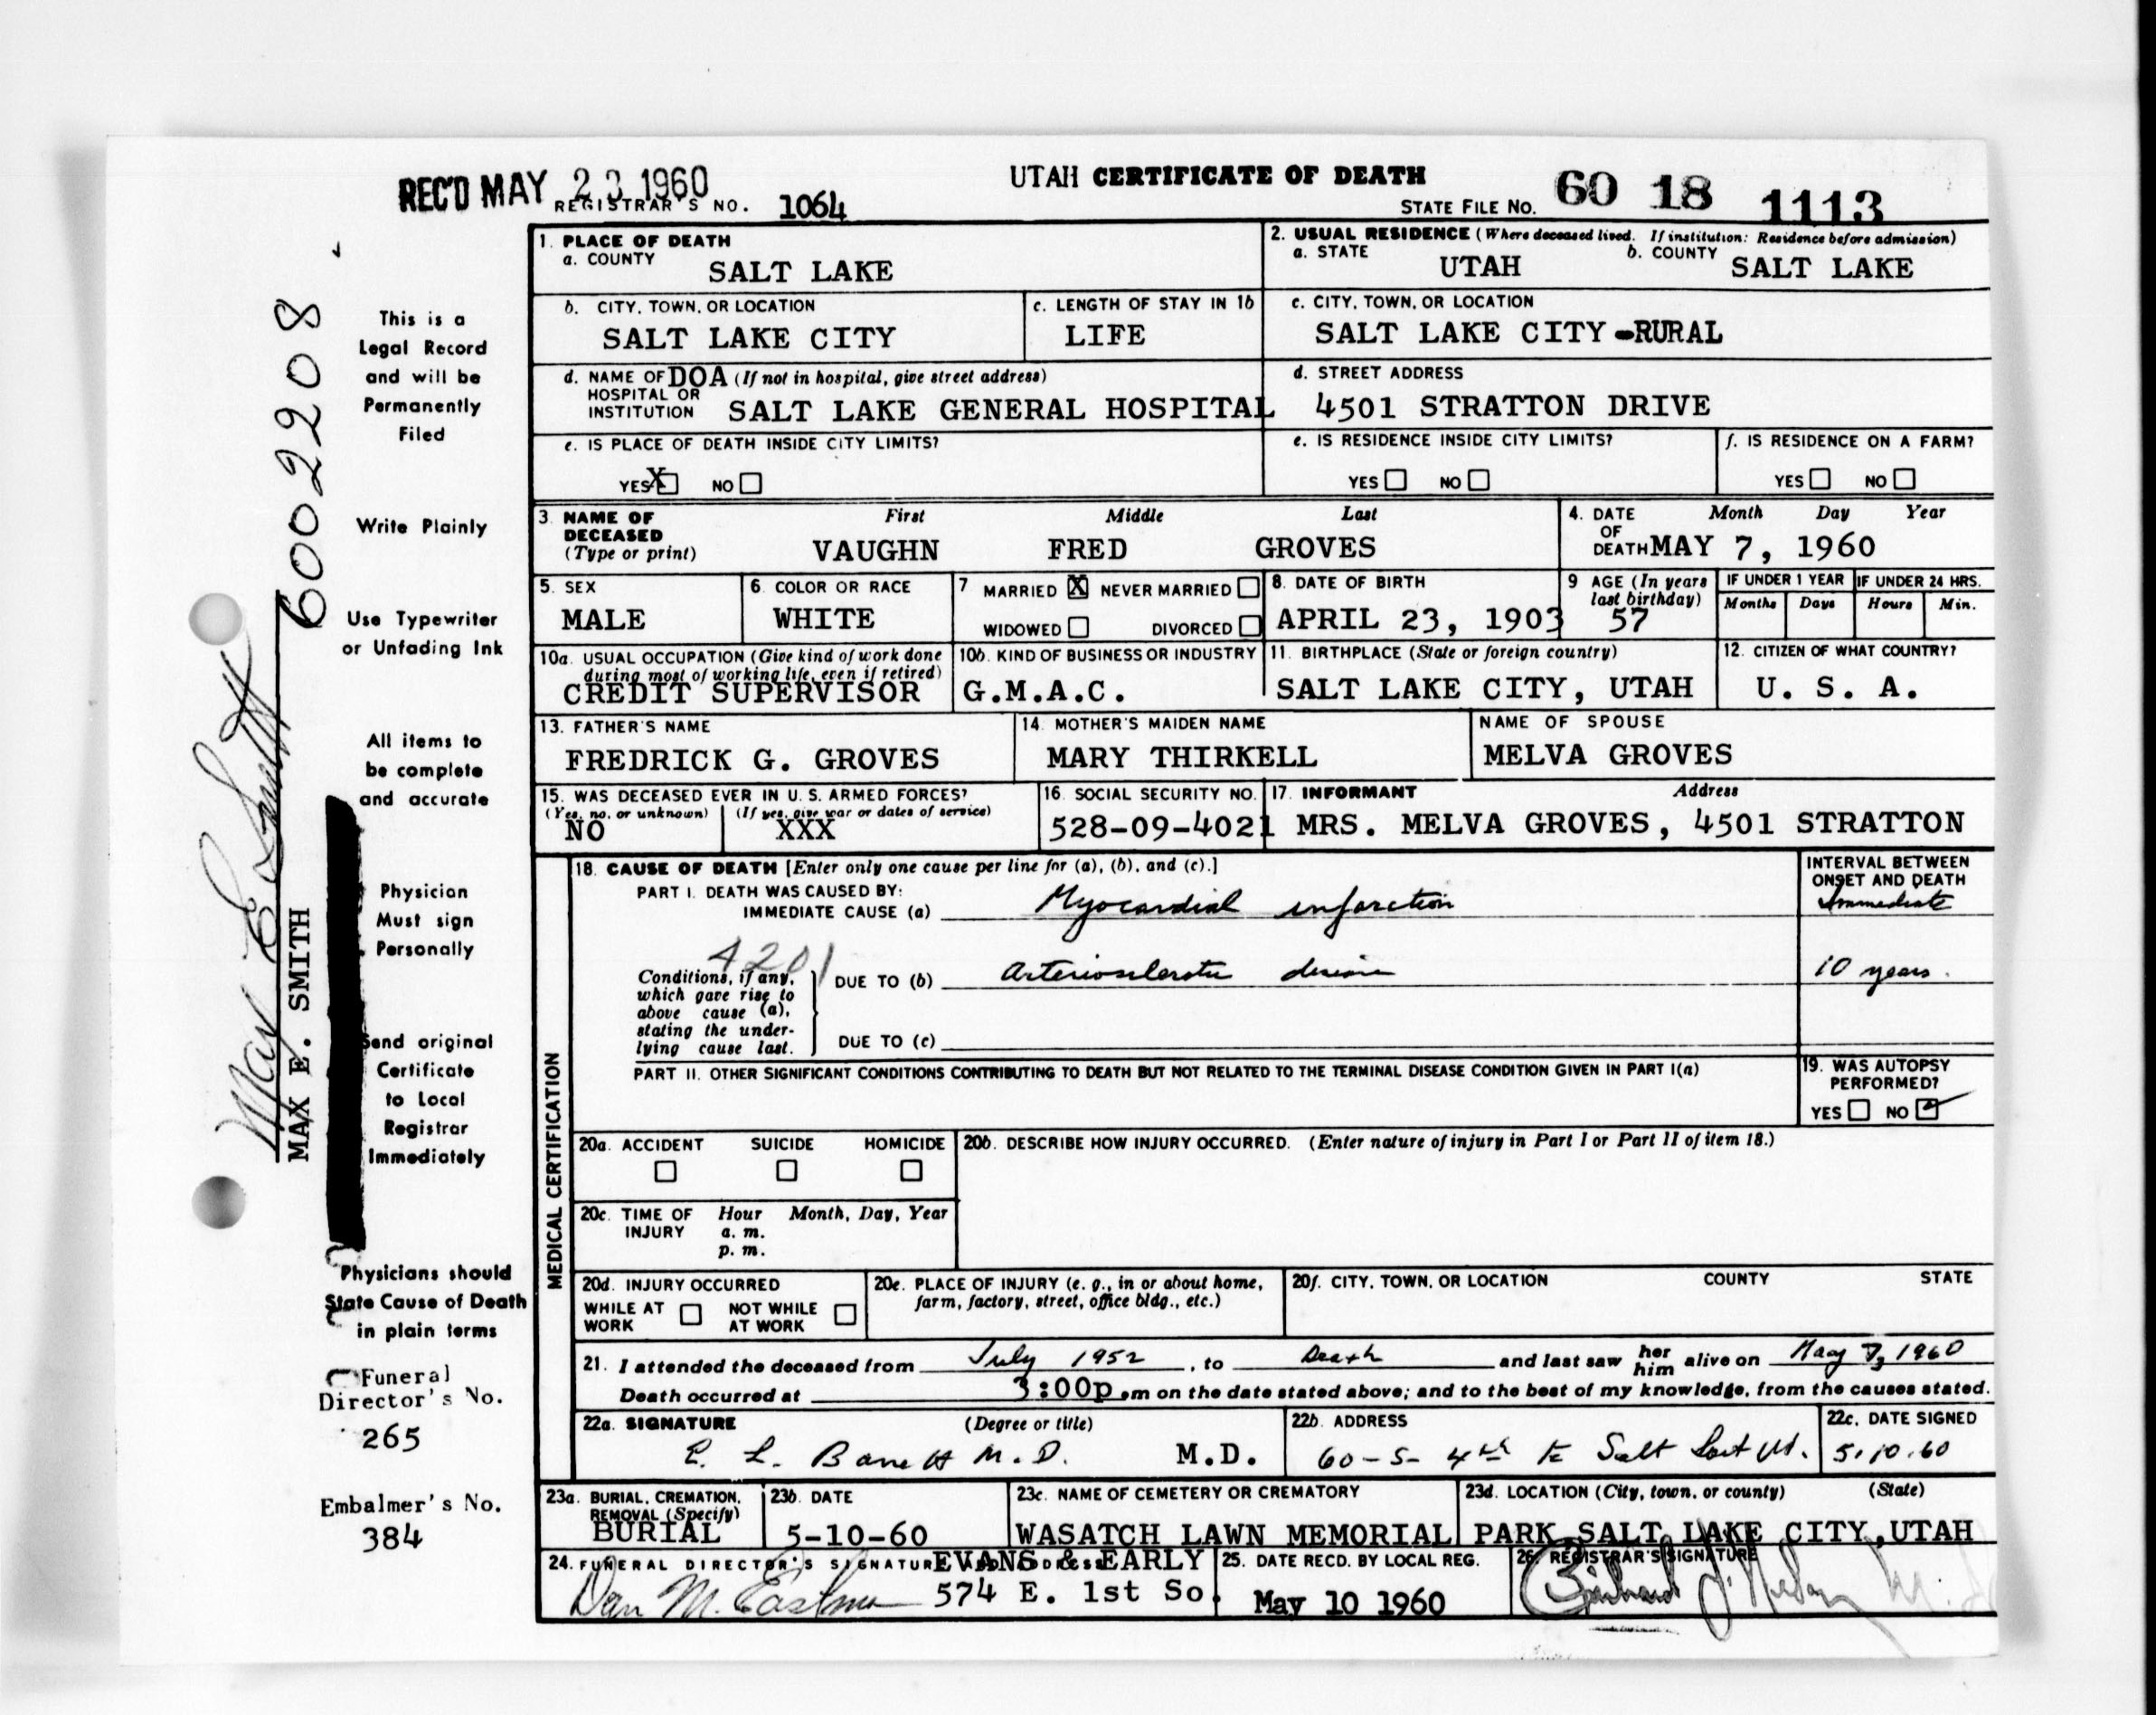 REC'D MAY 23 1960
REGISTRAR'S NO. 1064
UTAH CERTIFICATE OF DEATH
STATE FILE NO. 60 18 1113
1. PLACE OF DEATH
a. COUNTY SALT LAKE
2. USUAL RESIDENCE (Where deceased lived. If institution: Residence before admission)
a. STATE UTAH b. COUNTY SALT LAKE
b. CITY, TOWN, OR LOCATION SALT LAKE CITY
c. LENGTH OF STAY IN 1b LIFE
c. CITY, TOWN, OR LOCATION SALT LAKE CITY-RURAL
d. NAME OF DOA (If not in hospital, give street address)
HOSPITAL OR
INSTITUTION SALT LAKE GENERAL HOSPITAL
d. STREET ADDRESS 4501 STRATTON DRIVE
e. IS PLACE OF DEATH INSIDE CITY LIMITS?
YES X NO
e. IS RESIDENCE INSIDE CITY LIMITS?
YES NO
f. IS RESIDENCE ON A FARM?
YES NO
3. NAME OF DECEASED (Type or print)
First Middle Last
VAUGHN FRED GROVES
4. DATE OF DEATH Month Day Year
MAY 7, 1960
5. SEX MALE
6. COLOR OR RACE WHITE
7 MARRIED X NEVER MARRIED
WIDOWED DIVORCED
8. DATE OF BIRTH APRIL 23, 1903
9 AGE (In years last birthday) 57
IF UNDER 1 YEAR Months Days
IF UNDER 24 HRS. Hours Min.
10a. USUAL OCCUPATION (Give kind of work done during most of working life, even if retired)
CREDIT SUPERVISOR
10b. KIND OF BUSINESS OR INDUSTRY G.M.A.C.
11. BIRTHPLACE (State or foreign country) SALT LAKE CITY, UTAH
12. CITIZEN OF WHAT COUNTRY? U. S. A.
13. FATHER'S NAME FREDRICK G. GROVES
14. MOTHER'S MAIDEN NAME MARY THIRKELL
NAME OF SPOUSE MELVA GROVES
15. WAS DECEASED EVER IN U. S. ARMED FORCES?
(Yes, no, or unknown) (If yes, give war or dates of service)
NO XXX
16. SOCIAL SECURITY NO. 528-09-4021
17. INFORMANT Address
MRS. MELVA GROVES, 4501 STRATTON
MEDICAL CERTIFICATION
18. CAUSE OF DEATH [Enter only one cause per line for (a), (b), and (c).]
PART I. DEATH WAS CAUSED BY:
IMMEDIATE CAUSE (a) Myocardial infarction
INTERVAL BETWEEN ONSET AND DEATH
Immediate
4201
Conditions, if any, which gave rise to above cause (a), stating the underlying cause last.
DUE TO (b) Arteriosclerotic disease
10 years.
DUE TO (c)
PART II. OTHER SIGNIFICANT CONDITIONS CONTRIBUTING TO DEATH BUT NOT RELATED TO THE TERMINAL DISEASE CONDITION GIVEN IN PART I(a)
19. WAS AUTOPSY PERFORMED?
YES NO
20a. ACCIDENT SUICIDE HOMICIDE
20b. DESCRIBE HOW INJURY OCCURRED. (Enter nature of injury in Part I or Part II of item 18.)
20c. TIME OF INJURY Hour Month, Day, Year
a. m.
p. m.
20d. INJURY OCCURRED
WHILE AT WORK NOT WHILE AT WORK
20e. PLACE OF INJURY (e. g., in or about home, farm, factory, street, office bldg., etc.)
20f. CITY, TOWN, OR LOCATION COUNTY STATE
21. I attended the deceased from July 1952, to Death and last saw her him alive on May 7, 1960
Death occurred at 3:00p.m on the date stated above; and to the best of my knowledge, from the causes stated.
22a. SIGNATURE (Degree or title)
E. L. Barrett M.D. M.D.
22b. ADDRESS
60-S- 4th E Salt
22c. DATE SIGNED
5.10.60
23a. BURIAL, CREMATION, REMOVAL (Specify)
BURIAL
23b. DATE 5-10-60
23c. NAME OF CEMETERY OR CREMATORY
23d. LOCATION (City, town, or county) (State)
WASATCH LAWN MEMORIAL PARK SALT LAKE CITY, UTAH
24. FUNERAL DIRECTOR'S SIGNATURE AND ADDRESS
EVANS & EARLY
Dan M. Eastman
574 E. 1st So.
25. DATE RECD. BY LOCAL REG.
May 10 1960
26. REGISTRAR'S SIGNATURE
This is a
Legal Record
and will be
Permanently
Filed
Write Plainly
Use Typewriter
or Unfading Ink
All items to
be complete
and accurate
Physician
Must sign
Personally
Send original
Certificate
to Local
Registrar
Immediately
Physicians should
State Cause of Death
in plain terms
Funeral
Director's No.
265
Embalmer's No.
384
6002208
Max E Smith
MAX E. SMITH